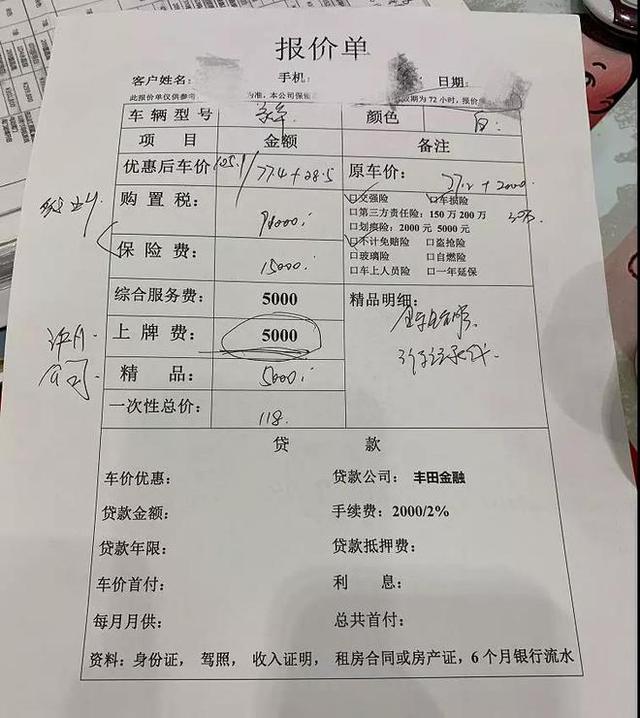 报价单
客户姓名: 手机: 日期:
此报价单仅供参考 为72小时,报价
车辆型号 颜色 白.
项 目 金额 备注
优惠后车价 105.1/77.4+28.5 原车价: 77.2+2000
购置税:
保险费: 15000
☑交强险 □车损险
□第三方责任险:150万 200万
□划痕险:2000元 5000元
☑不计免赔险 □盗抢险
□玻璃险 □自燃险
□车上人员险 □一年延保
综合服务费: 5000 精品明细:
上牌费: 5000
精 品: 5000
一次性总价: 118.
公司.
贷 款
车价优惠: 贷款公司: 丰田金融
贷款金额: 手续费:2000/2%
贷款年限: 贷款抵押费:
车价首付: 利 息:
每月月供: 总共首付:
资料:身份证, 驾照, 收入证明, 租房合同或房产证,6个月银行流水